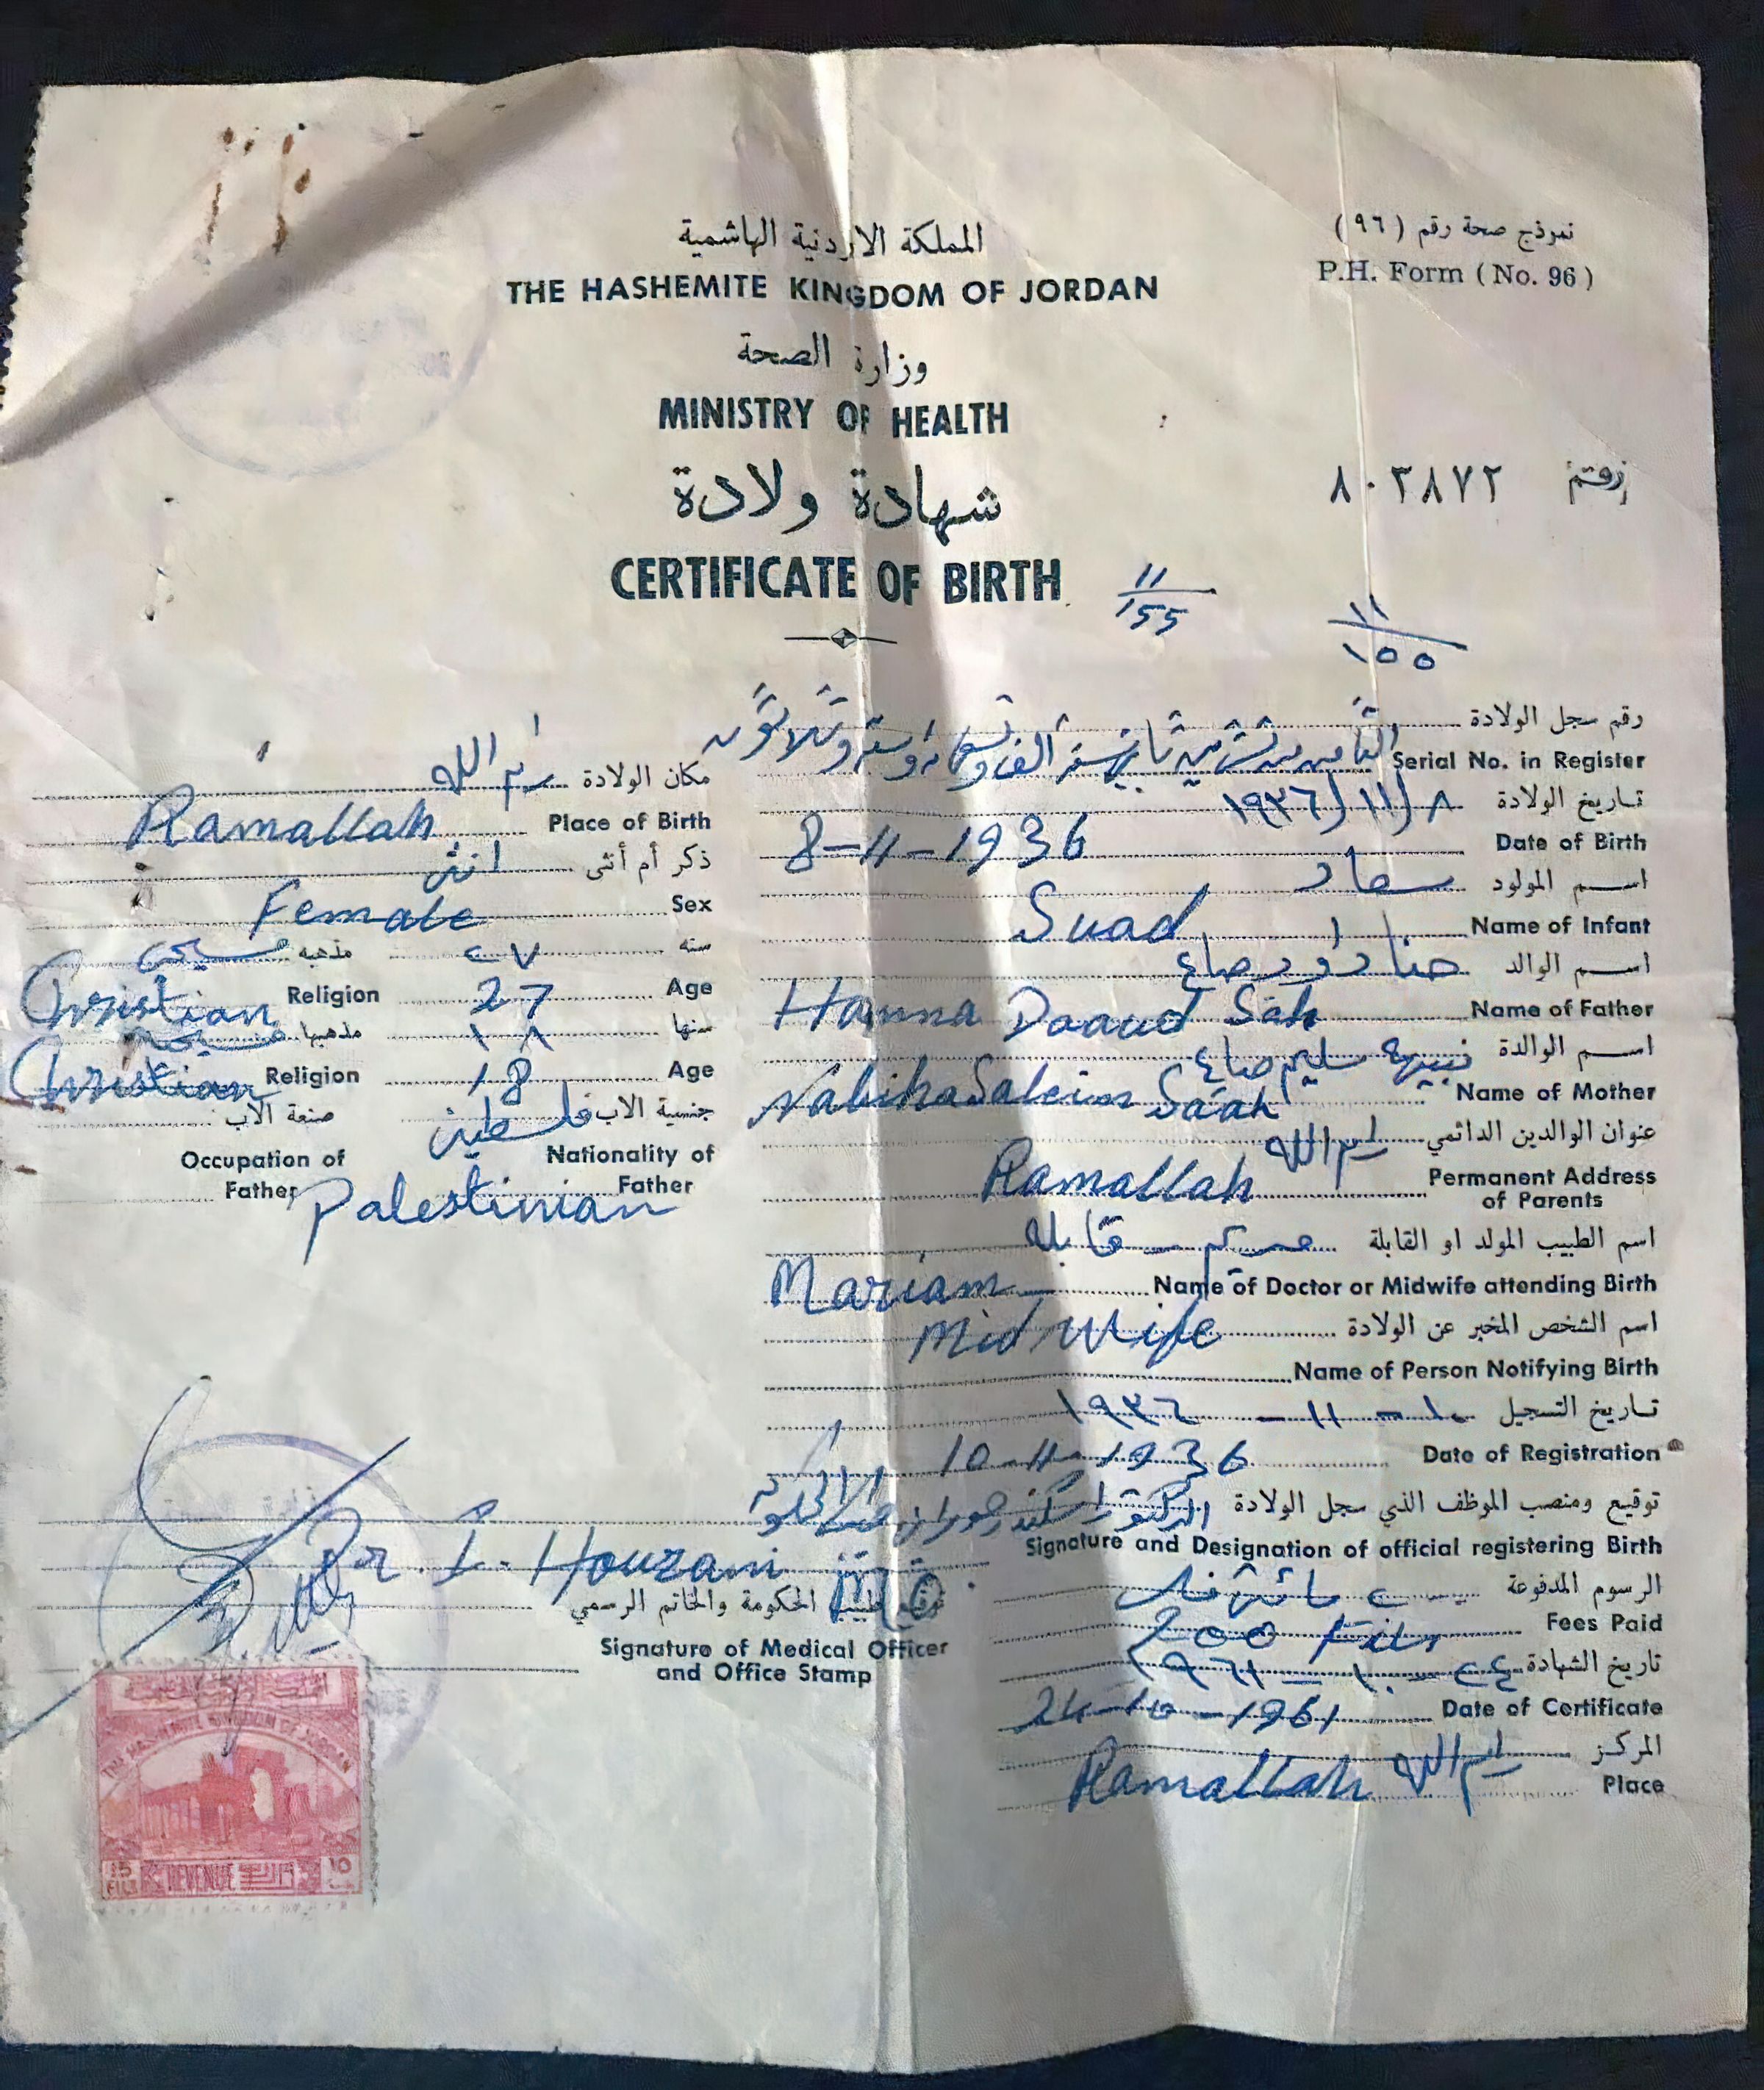 المملكة الاردنية الهاشمية
THE HASHEMITE KINGDOM OF JORDAN
نموذج صحة رقم (٩٦)
P.H. Form (No. 96)
وزارة الصحة
MINISTRY OF HEALTH
شهادة ولادة
رقم ٨٠٣٨٧٢
CERTIFICATE OF BIRTH
11/155
١١/١٥٥
رقم سجل الولادة
Serial No. in Register
الثامن من تشرين ثاني سنة الف وتسعماية وستة وثلاثون
تاريخ الولادة ٨/١١/١٩٣٦
8-11-1936 Date of Birth
اسم المولود سعاد
Suad Name of Infant
اسم الوالد حنا داود صاع
Hanna Daaud Sah Name of Father
اسم الوالدة نبيهه سليم صاع
Nabiha Saleim Sa'ah Name of Mother
عنوان الوالدين الدائمي رام الله
Ramallah Permanent Address of Parents
اسم الطبيب المولد او القابلة مريم - قابله
Mariam Name of Doctor or Midwife attending Birth
Mid wife
اسم الشخص المخبر عن الولادة
Name of Person Notifying Birth
تاريخ التسجيل ١٠ - ١١ - ١٩٣٦
10-11-1936 Date of Registration
توقيع ومنصب الموظف الذي سجل الولادة الدكتور اسكندر حوراني
Signature and Designation of official registering Birth
الرسوم المدفوعة
200 Fils Fees Paid
تاريخ الشهادة ٢٤-١٠-١٩٦١
24-10-1961 Date of Certificate
المركز رام الله
Ramallah Place
مكان الولادة رام الله
Ramallah Place of Birth
ذكر أم أنثى انثى
Female Sex
سنه ٢٧ مذهبه مسيحي
Christian Religion 27 Age
سنها ١٨ مذهبها مسيحيه
Christian Religion 18 Age
جنسية الاب فلسطيني صنعة الاب
Occupation of Father
Nationality of Father
Palestinian
Dr. I. Hourani
M.O.
توقيع طبيب الحكومة والخاتم الرسمي
Signature of Medical Officer and Office Stamp
THE HASHEMITE KINGDOM OF JORDAN
15 FILS REVENUE ١٥